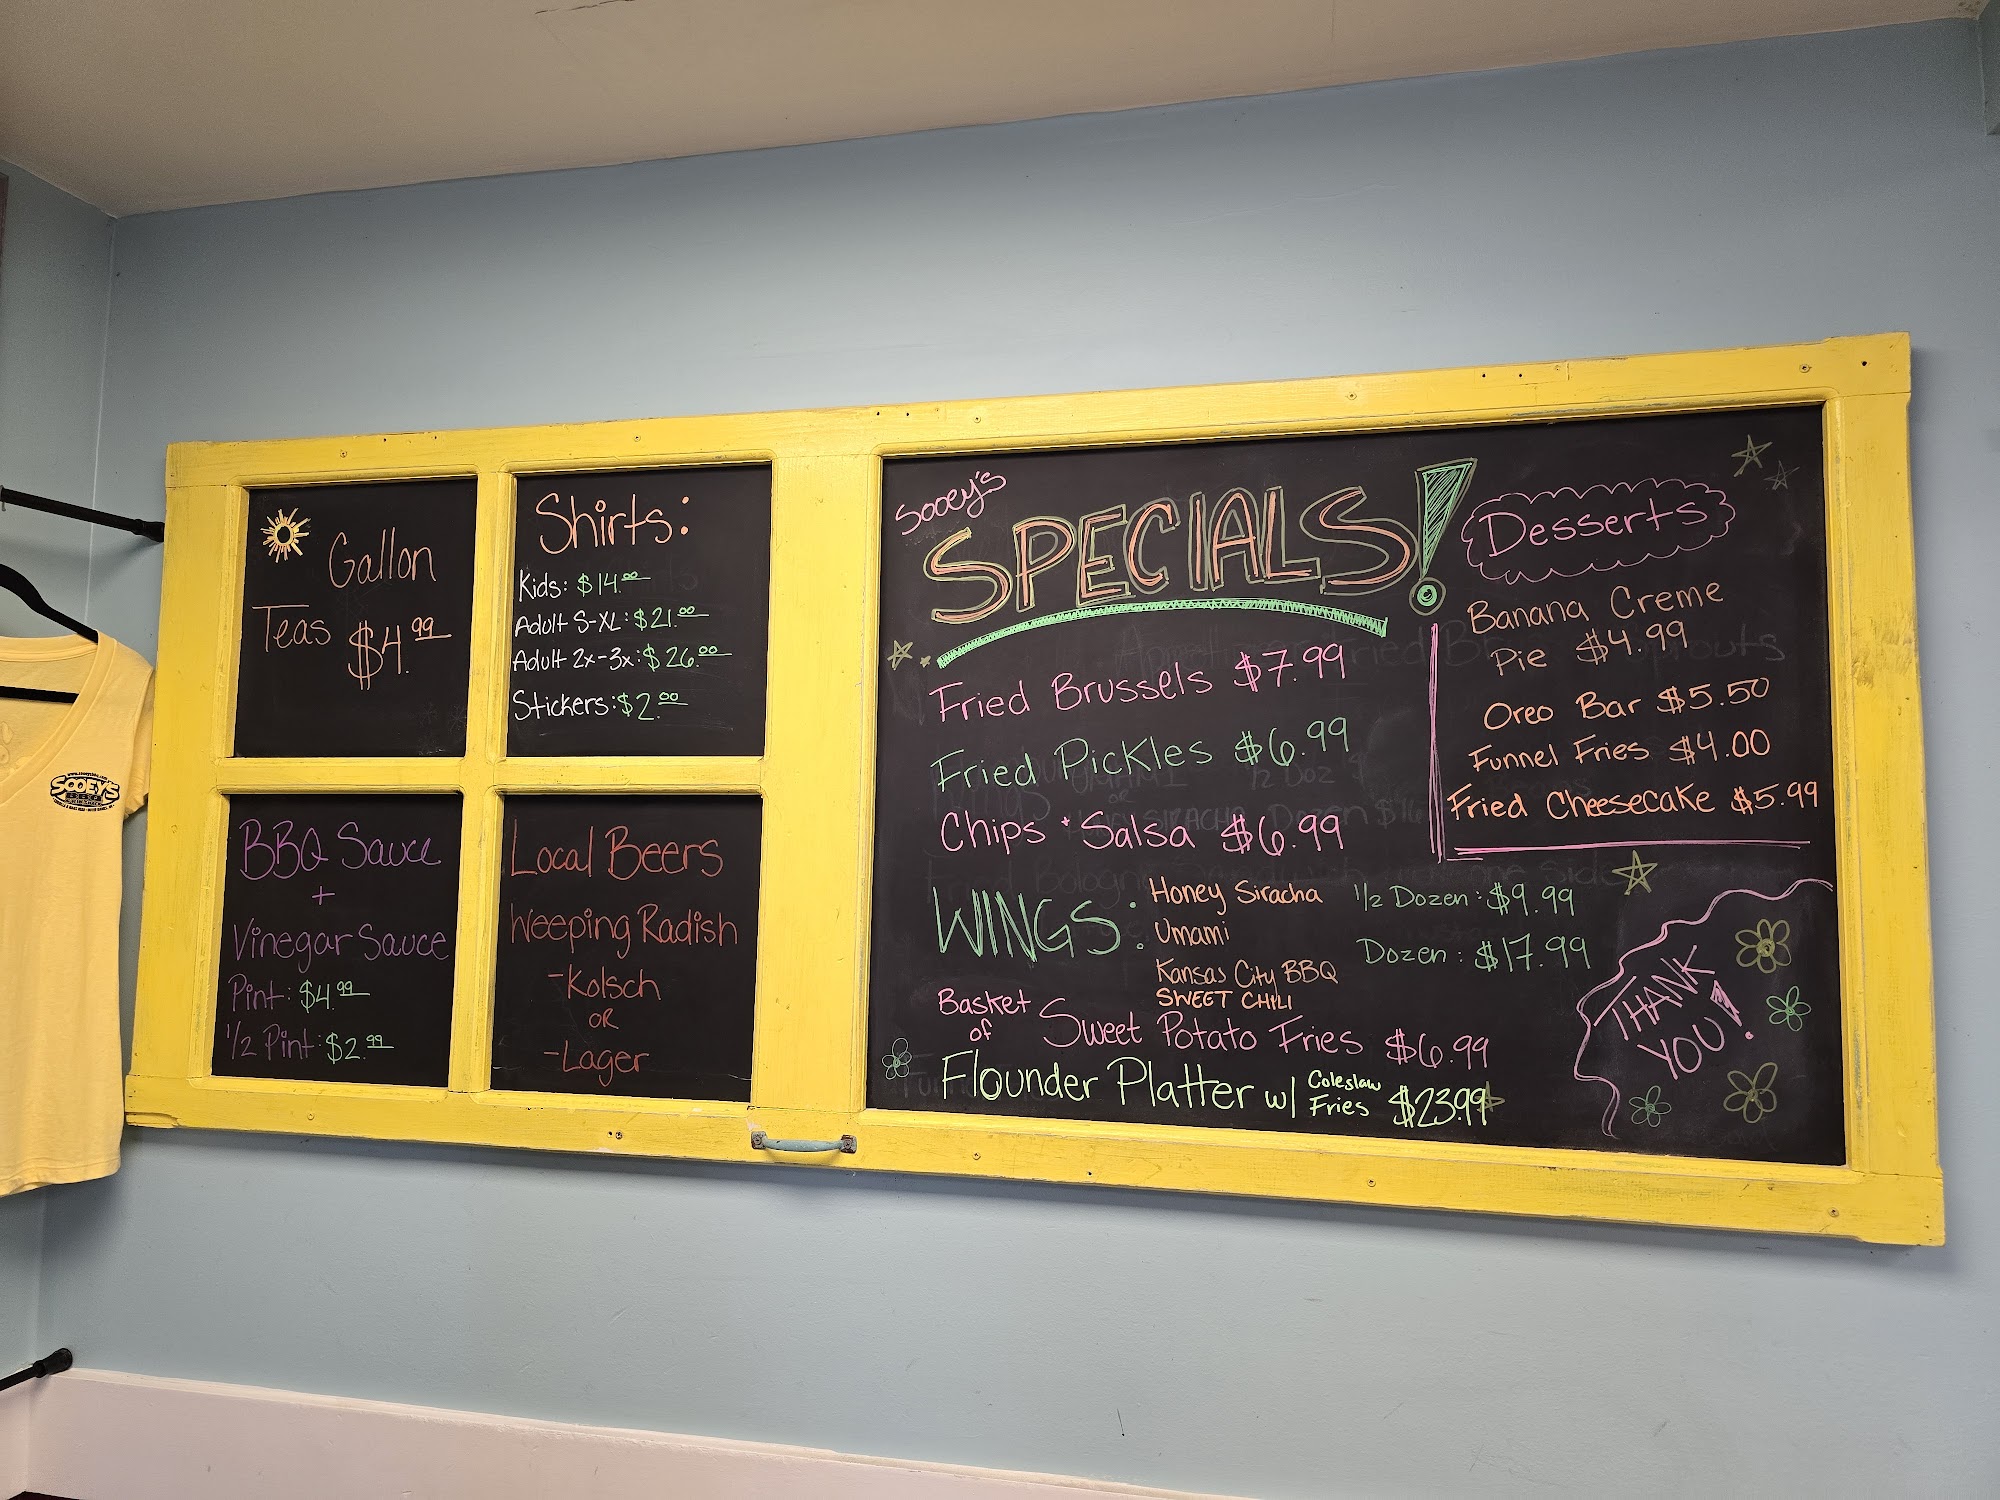 Gallon
Teas $4.99
Shirts:
Kids: $14.00
Adult S-XL: $21.00
Adult 2x-3x: $26.00
Stickers: $2.00
BBQ Sauce
+
Vinegar Sauce
Pint: $4.99
1/2 Pint: $2.99
Local Beers
Weeping Radish
-Kolsch
OR
-Lager
Sooey's
SPECIALS!
Fried Brussels $7.99
Fried Pickles $6.99
Chips + Salsa $6.99
WINGS:
Honey Siracha
Umami
Kansas City BBQ
SWEET CHILI
1/2 Dozen: $9.99
Dozen: $17.99
Basket
of
Sweet Potato Fries $6.99
Flounder Platter w/ Coleslaw
Fries $23.99
Desserts
Banana Creme
Pie $4.99
Oreo Bar $5.50
Funnel Fries $4.00
Fried Cheesecake $5.99
THANK
YOU!
SOOEY'S